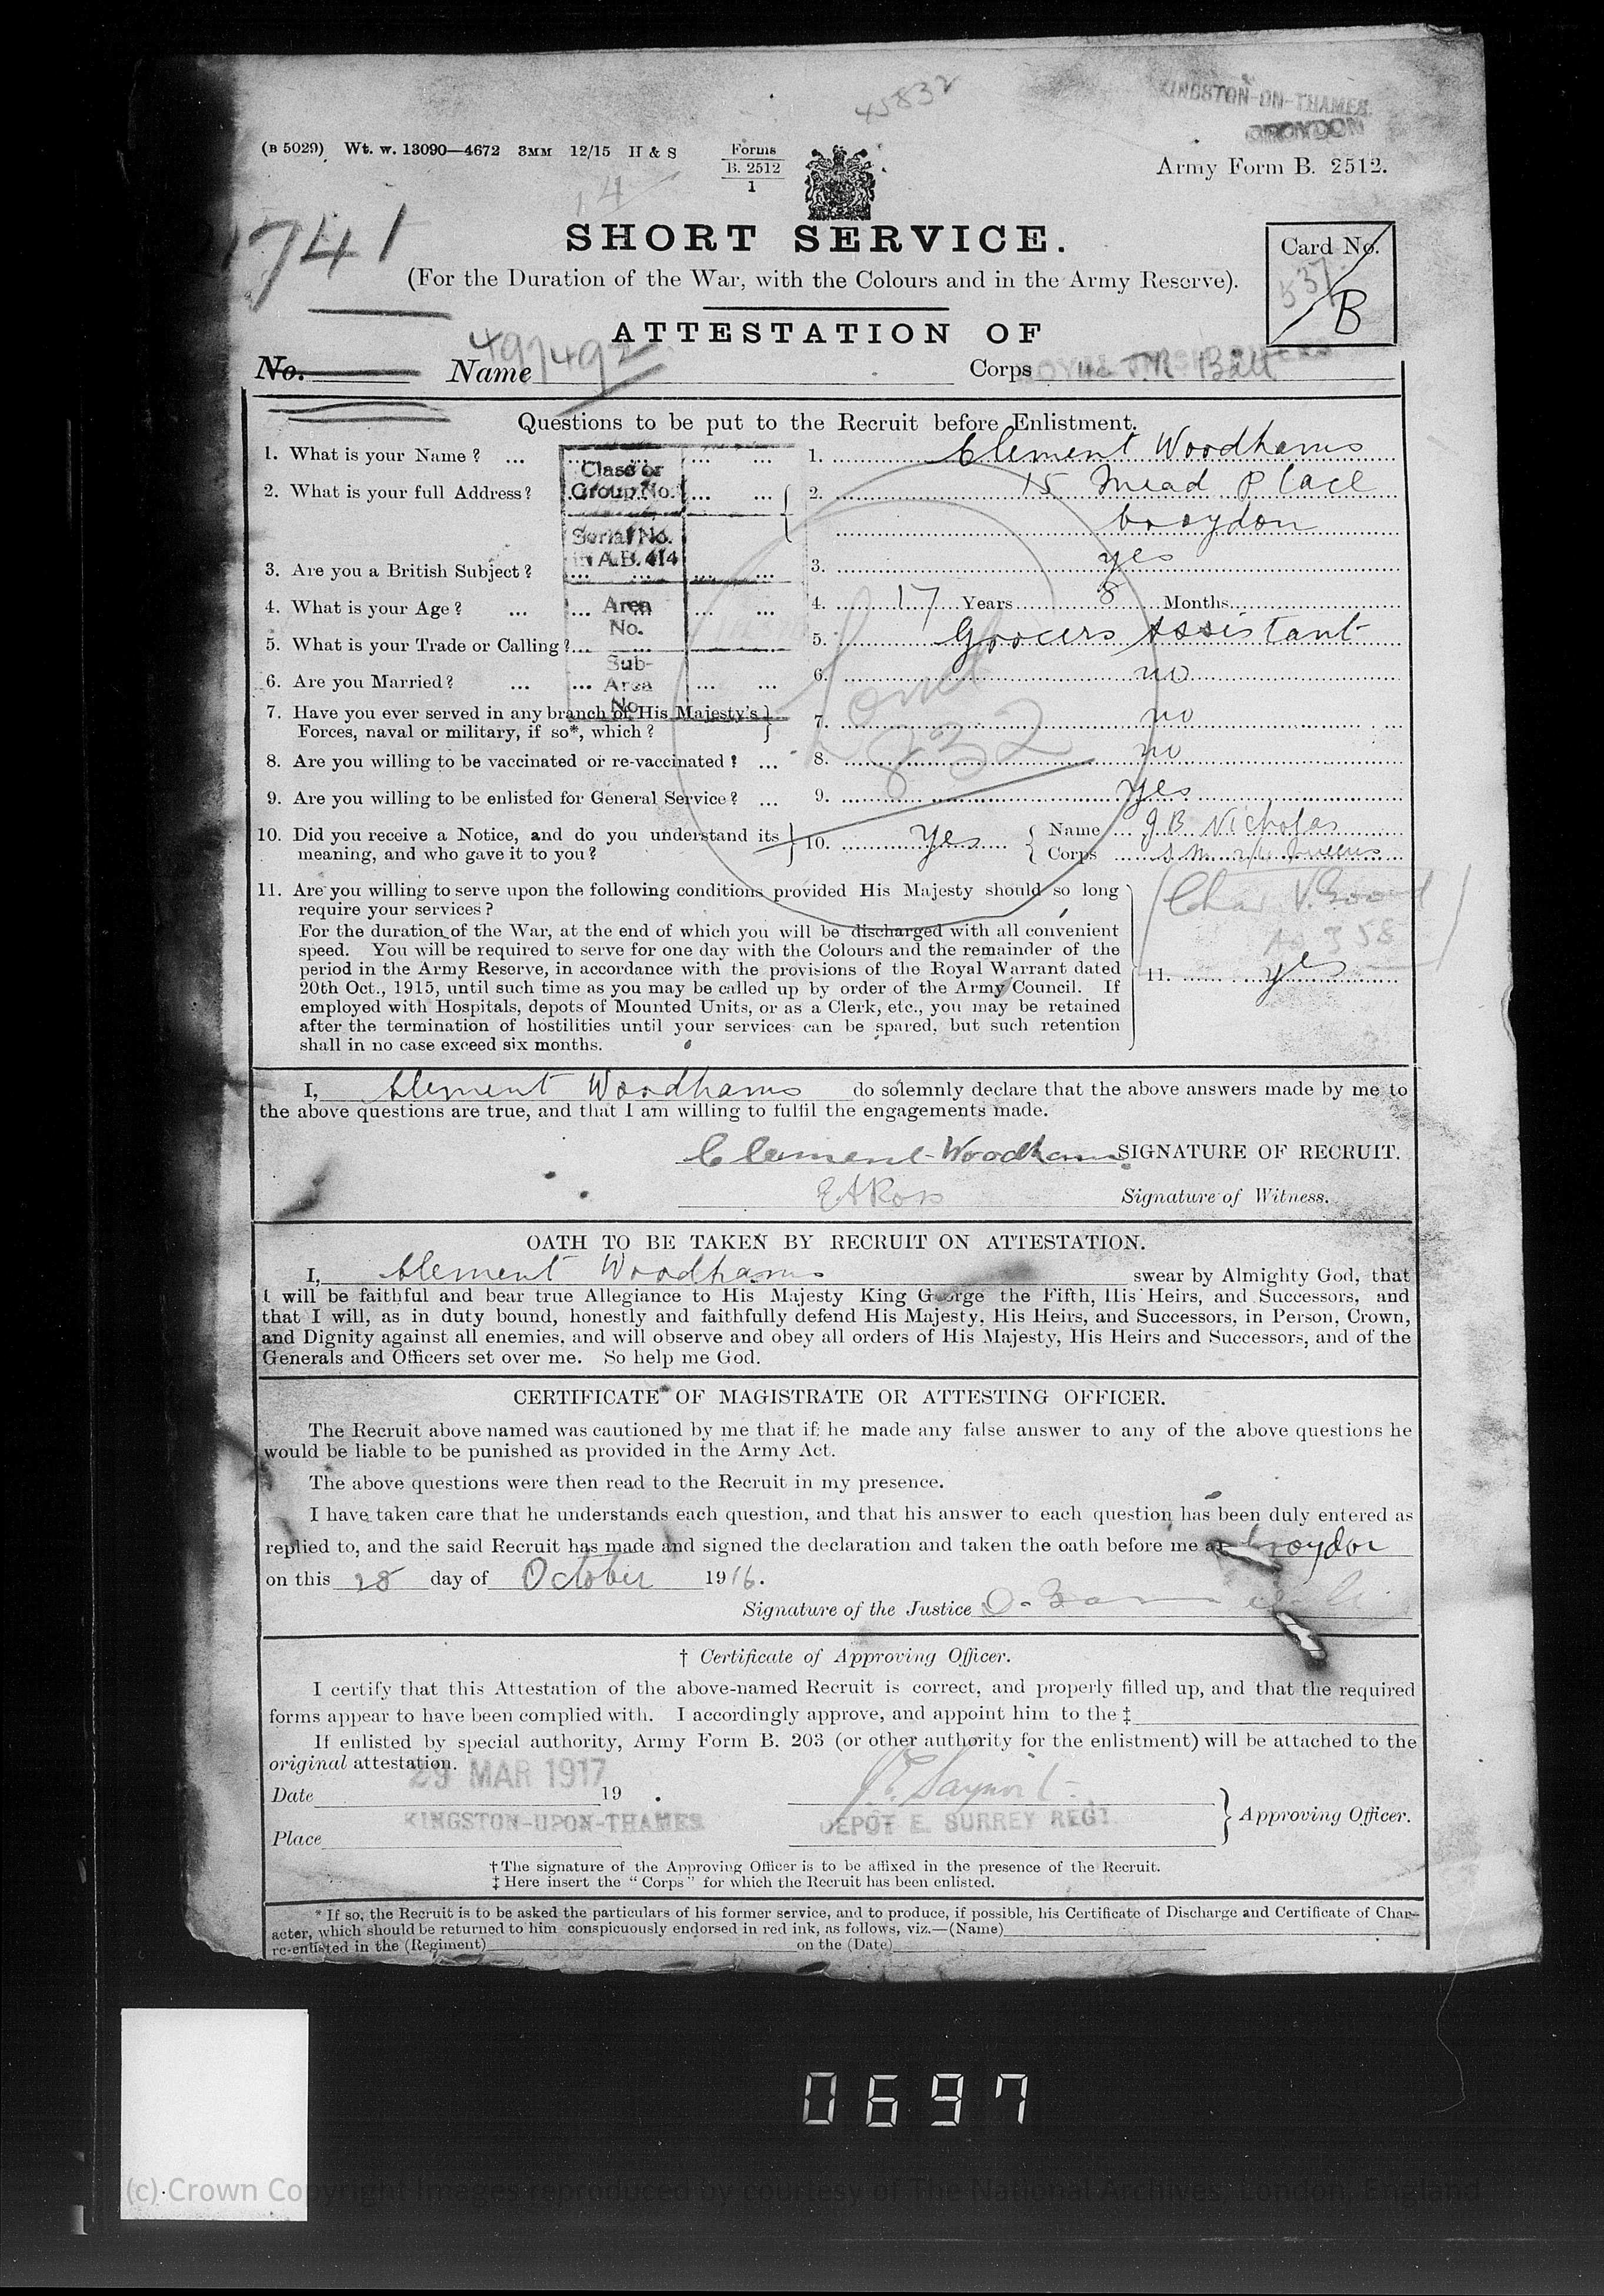 45832
KINGSTON-ON-THAMES.
CROYDON
(B 5029) Wt. w. 13090—4672 3MM 12/15 H & S
Forms
B. 2512
1
Army Form B. 2512.
14
1741
SHORT SERVICE.
(For the Duration of the War, with the Colours and in the Army Reserve).
Card No.
537
B
ATTESTATION OF
497492
No. Name Corps T.R. Batt
Questions to be put to the Recruit before Enlistment.
1. What is your Name? ... 1. Clement Woodhams
Class or
Group No.
2. What is your full Address? 2. 15 Mead Place
Croydon
Serial No.
in A.B. 414
3. Are you a British Subject? 3. yes
4. What is your Age? ... 4. 17 Years 8 Months
Area
No.
5. What is your Trade or Calling? ... 5. Grocers Assistant
Sub-
Area
No.
6. Are you Married? ... 6. no
7. Have you ever served in any branch of His Majesty's
Forces, naval or military, if so*, which? 7. no
832
8. Are you willing to be vaccinated or re-vaccinated? ... 8. no
9. Are you willing to be enlisted for General Service? ... 9. Yes
10. Did you receive a Notice, and do you understand its
meaning, and who gave it to you? 10. Yes Name J B Nicholas
Corps S M Queens
11. Are you willing to serve upon the following conditions provided His Majesty should so long
require your services?
For the duration of the War, at the end of which you will be discharged with all convenient
speed. You will be required to serve for one day with the Colours and the remainder of the
period in the Army Reserve, in accordance with the provisions of the Royal Warrant dated
20th Oct., 1915, until such time as you may be called up by order of the Army Council. If
employed with Hospitals, depots of Mounted Units, or as a Clerk, etc., you may be retained
after the termination of hostilities until your services can be spared, but such retention
shall in no case exceed six months.
11. yes
I, Clement Woodhams do solemnly declare that the above answers made by me to
the above questions are true, and that I am willing to fulfil the engagements made.
Clement Woodhams SIGNATURE OF RECRUIT.
E A Ross Signature of Witness.
OATH TO BE TAKEN BY RECRUIT ON ATTESTATION.
I, Clement Woodhams swear by Almighty God, that
I will be faithful and bear true Allegiance to His Majesty King George the Fifth, His Heirs, and Successors, and
that I will, as in duty bound, honestly and faithfully defend His Majesty, His Heirs, and Successors, in Person, Crown,
and Dignity against all enemies, and will observe and obey all orders of His Majesty, His Heirs and Successors, and of the
Generals and Officers set over me. So help me God.
CERTIFICATE OF MAGISTRATE OR ATTESTING OFFICER.
The Recruit above named was cautioned by me that if he made any false answer to any of the above questions he
would be liable to be punished as provided in the Army Act.
The above questions were then read to the Recruit in my presence.
I have taken care that he understands each question, and that his answer to each question has been duly entered as
replied to, and the said Recruit has made and signed the declaration and taken the oath before me at Croydon
on this 28 day of October 1916.
Signature of the Justice
† Certificate of Approving Officer.
I certify that this Attestation of the above-named Recruit is correct, and properly filled up, and that the required
forms appear to have been complied with. I accordingly approve, and appoint him to the ‡
If enlisted by special authority, Army Form B. 203 (or other authority for the enlistment) will be attached to the
original attestation.
29 MAR 1917
Date 19 .
KINGSTON-UPON-THAMES DEPÔT E. SURREY REGT. Approving Officer.
Place
† The signature of the Approving Officer is to be affixed in the presence of the Recruit.
‡ Here insert the "Corps" for which the Recruit has been enlisted.
* If so, the Recruit is to be asked the particulars of his former service, and to produce, if possible, his Certificate of Discharge and Certificate of Char-
acter, which should be returned to him conspicuously endorsed in red ink, as follows, viz.—(Name)
re-enlisted in the (Regiment) on the (Date)
0697
(c) Crown Copyright Images reproduced by courtesy of The National Archives, London, England